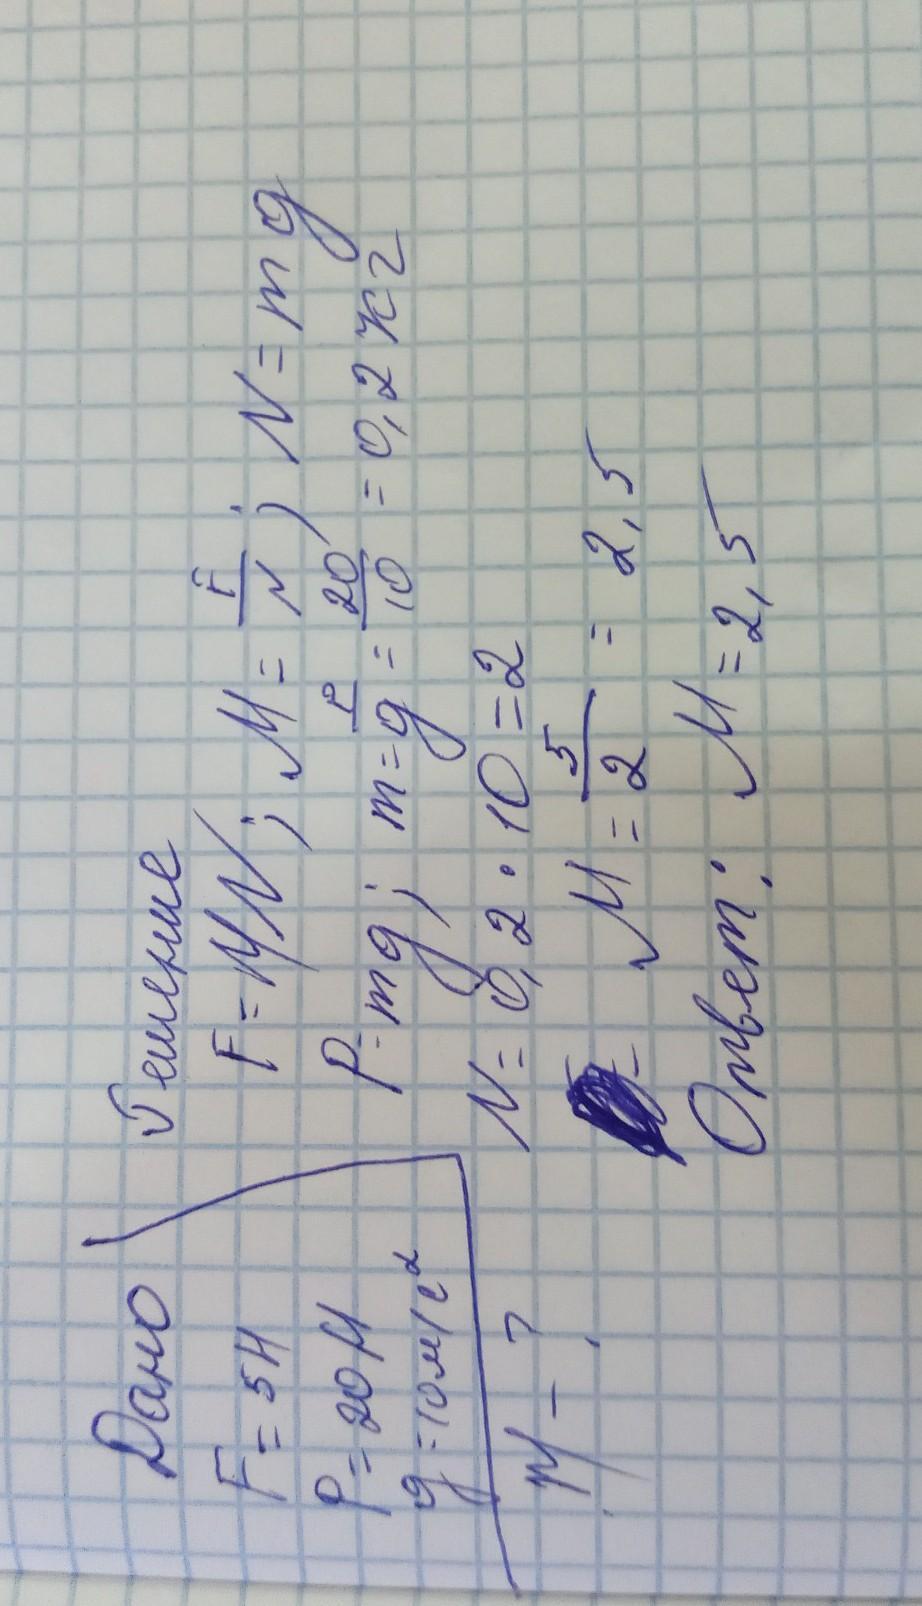 Дано
F = 5Н
P = 20Н
g = 10м/с²
μ - ?
Решение
F = μN; μ = F/N; N = mg
P = mg; m = P/g = 20/10 = 0,2кг
N = 0,2 · 10 = 2
μ = 5/2 = 2,5
Ответ: μ = 2,5